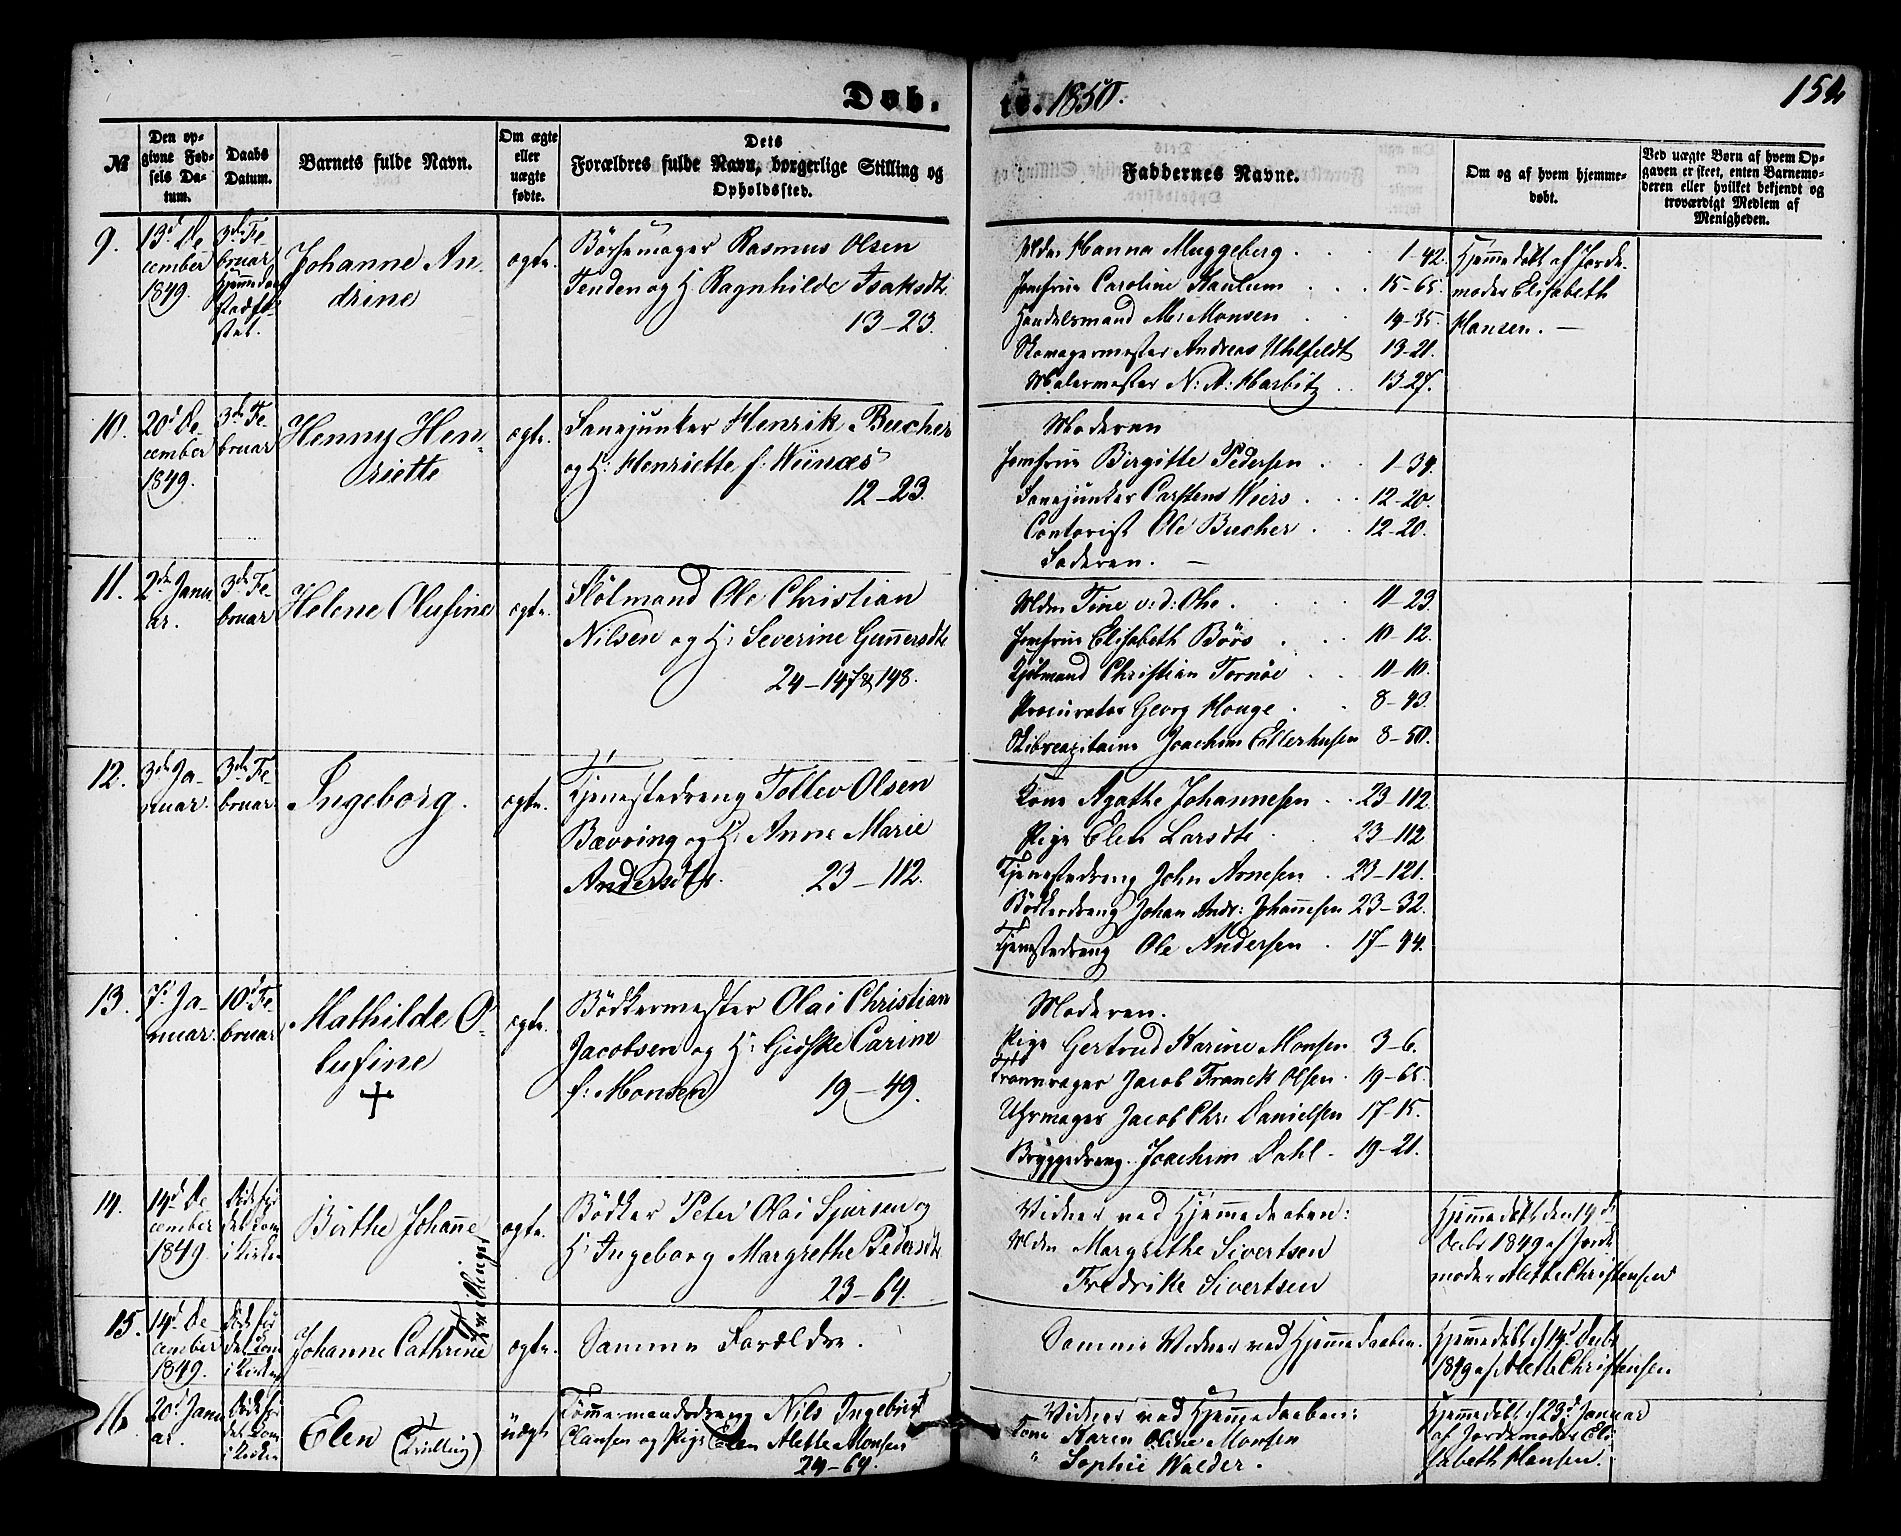 Døb-
te. 1850.
152
№
Den op-
givne Fød-
sels Da-
tum.
Daabs
Datum.
Barnets fulde Navn.
Om ægte
eller
uægte
fødte.
Dets
Forældres fulde Navn, borgerlige Stilling og
Opholdssted.
Faddernes Navne.
Om og af hvem hjemme-
døbt.
Ved uægte Børn af hvem Op-
gaven er skeet, enten Barnemo-
deren eller hvilket bekjendt og
troværdigt Medlem af
Menigheden.
9.
13d De
cember
1849.
3de Fe-
bruar
Hjemmedaab
stadfæ-
stet.
Johanne An-
drine
ægte.
Børstemager Rasmus Olsen
Tenden og H: Ragnhilde Isaksdtr.
13-23.
Mdm Hanna Muggeberg . . . 1-42.
Jomfrue Caroline Kaulum . . . 15-65.
Handelsmand M: Monsen . . 14-35.
Skomagermester Andreas Uhlfeldt 13-21.
Malermester N: A: Harbitz . . 13-27.
Hjemmedøbt af Jorde-
moder Elisabeth
Hansen. —
10.
20d De-
cember
1849.
3de Fe-
bruar
Henny Hen-
riette
ægte.
Fanejunker Henrik Bucher
og H: Henriette f: Wiinæs
12-23.
Moderen
Jomfrue Birgitte Pedersen . . 1-34.
Fanejunker Carstens Weirs . . 12-20.
Contorist Ole Bucher . . 12-20.
Faderen. —
11.
2de Janu-
ar.
3de Fe-
bruar
Helene Olufine
ægte.
Flølmand Ole Christian
Nilsen og H: Severine Gunnersdtr
24-147 & 148.
Mdm Tine v: d: Ohe . . . . 11-23.
Jomfrue Elisabeth Børs . . . 10-12.
Kjølmand Christian Tornøe . . 11-10.
Procurator Georg Houge . . 8-43.
Skibscapitain Joachim Ellerhusen 8-50.
12.
3de Ja-
nuar.
3de Fe-
bruar.
Ingeborg.
ægte.
Tjenestedreng Tollev Olsen
Bævring og H: Anne Marie
Andersdtr. 23-112.
Kone Agathe Johannesen . . 23-112.
Pige Elen Larsdtr . 23-112
Tjenestedreng John Arnesen . 23-121.
Bødkerdreng Johan Andr: Johannesen 23-32.
Tjenestedreng Ole Andersen . 17-44.
13.
7d Ja-
nuar.
10d Fe-
bruar
Mathilde O-
lufine
+
ægte.
Bødkermester Olai Christian
Jacobsen og H: Gidske Carine
f: Monsen 19-49.
Moderen.
Pige Gertrud Karine Monsen 3-6.
Jacob Franck Olsen. 19-65.
Uhrmager Jacob Chr: Danielsen 17-15.
Bryggedreng. Joachim Dahl - 19-21.
14.
14d De
cember
1849.
Døde før
det kom
i Kirken
Birthe Johanne
Tvillinger
ægte.
Bødker Peter Olai Sjursen og
H: Ingeborg Margrethe Pedersdtr
23-64.
Vidner ved Hjemmedaaben:
Mdm Margrethe Sivertsen
Fredrikke Sivertsen
Hjemmedøbt den 14d
Decbr 1849 af Jorde-
moder Alethe Christensen
15.
14d De-
cember
1849.
Døde før
det kom
i Kirken
Johanne Cathrine
ægte.
Samme Forældre.
Samme Vidner ved Hjemmedaaben.
Hjemmedøbt d 14d Decbr
1849 af Aleth Christensen
16.
20d Janu
ar.
Døde før
det kom
i Kirken
Elen (Tvilling)
uægte
Tømmermandsdreng Nils Ingebrigt
Clausen og Pige Elen Alethe Monsen
24-64.
Vidner ved Hjemmedaaben:
Kone Karen Oline Monsen
" Sophie Walder.
Hjemmedøbt d 23d Januar
af Jordemoder Eli-
sabeth Hansen.